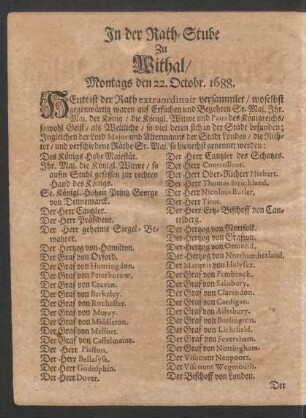 In der Rath-Stube
Zu
Withal/
Montags den 22. Octobr. 1688.
HEute ist der Rath extraordinair versammlet/ woselbst
gegenwärtig waren auf Ersuchen und Begehren Sr. Mai. Ihr.
Mai. der König / die Königl. Witwe und Pairs des Königreichs/
so wohl Geist- als Weltliche / so viel deren sich in der Stadt befunden;
Ingleichen der Lord Major und Aldermanns der Stadt Londen/ die Rich-
ter/ und verschiedene Räthe Sr. Mai. so hienechst genennet werden:
Des Königs Hohe Majestät.
Ihr. Mai. die Königl. Witwe / so
auf’m Stuhl gesessen zur rechten
Hand des Königs.
Sr. Königl. Hoheit Printz George
von Dennemarck.
Der Herr Cantzler.
Der Herr Præsident.
Der Herr geheime Siegel-Be-
wahrer.
Der Hertzog von Hamilton.
Der Graf von Oxford.
Der Graf von Huntingdon.
Der Graf von Peterburow.
Der Graf von Craven.
Der Graf von Berkeley.
Der Graf von Rochester.
Der Graf von Morey.
Der Graf von Middleton.
Der Graf von Melfort.
Der Graf von Castelmains.
Der Herr Preston.
Der Herr Bellasyse.
Der Herr Godolphin.
Der Herr Dover.
Der Herr Cantzler des Schatzes.
Der Herr Controlleur.
Der Herr Ober-Richter Herbert.
Der Herr Thomas Strickland.
Der Herr Nicolaus Butler.
Der Herr Titus.
Der Herr Ertz-Bischoff von Can-
telberg.
Der Hertzog von Nortfolk.
Der Hertzog von Grafton.
Der Hertzog von Ormond.
Der Hertzog von Northumberland.
Der Marquis von Halyfax.
Der Graf von Pembrock.
Der Graf von Salisbury.
Der Graf von Clarendon.
Der Graf von Cardigan.
Der Graf von Ailesbury.
Der Graf von Burlington.
Der Graf von Lichfield.
Der Graf von Feversham.
Der Graf von Nottingham.
Der Viscount Neuport.
Der Viscount Weymouth.
Der Bischoff von Londen.
Der